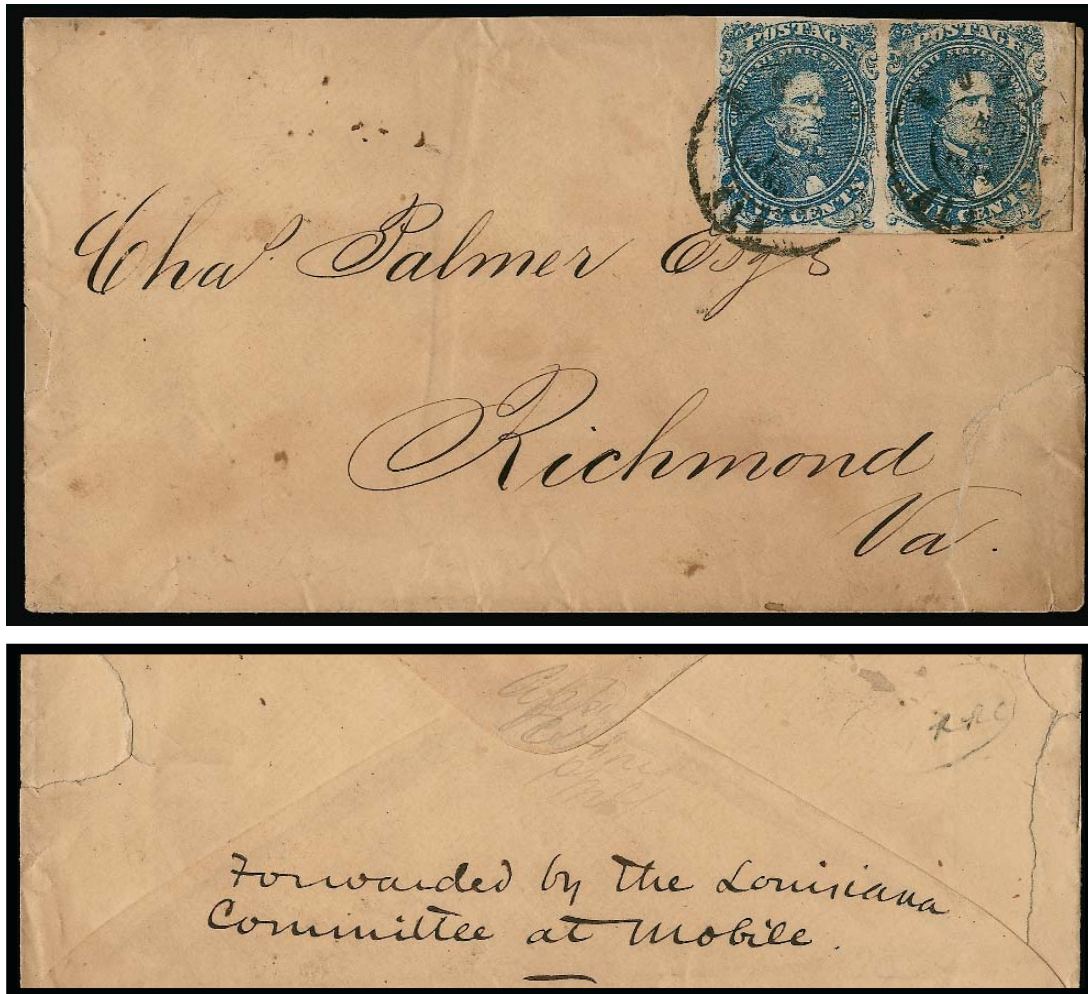 POSTAGE POSTAGE
FIVE CENTS FIVE CENTS
Chas. Palmer Esqr
Richmond
Va.
Forwarded by the Louisiana
Committee at Mobile.